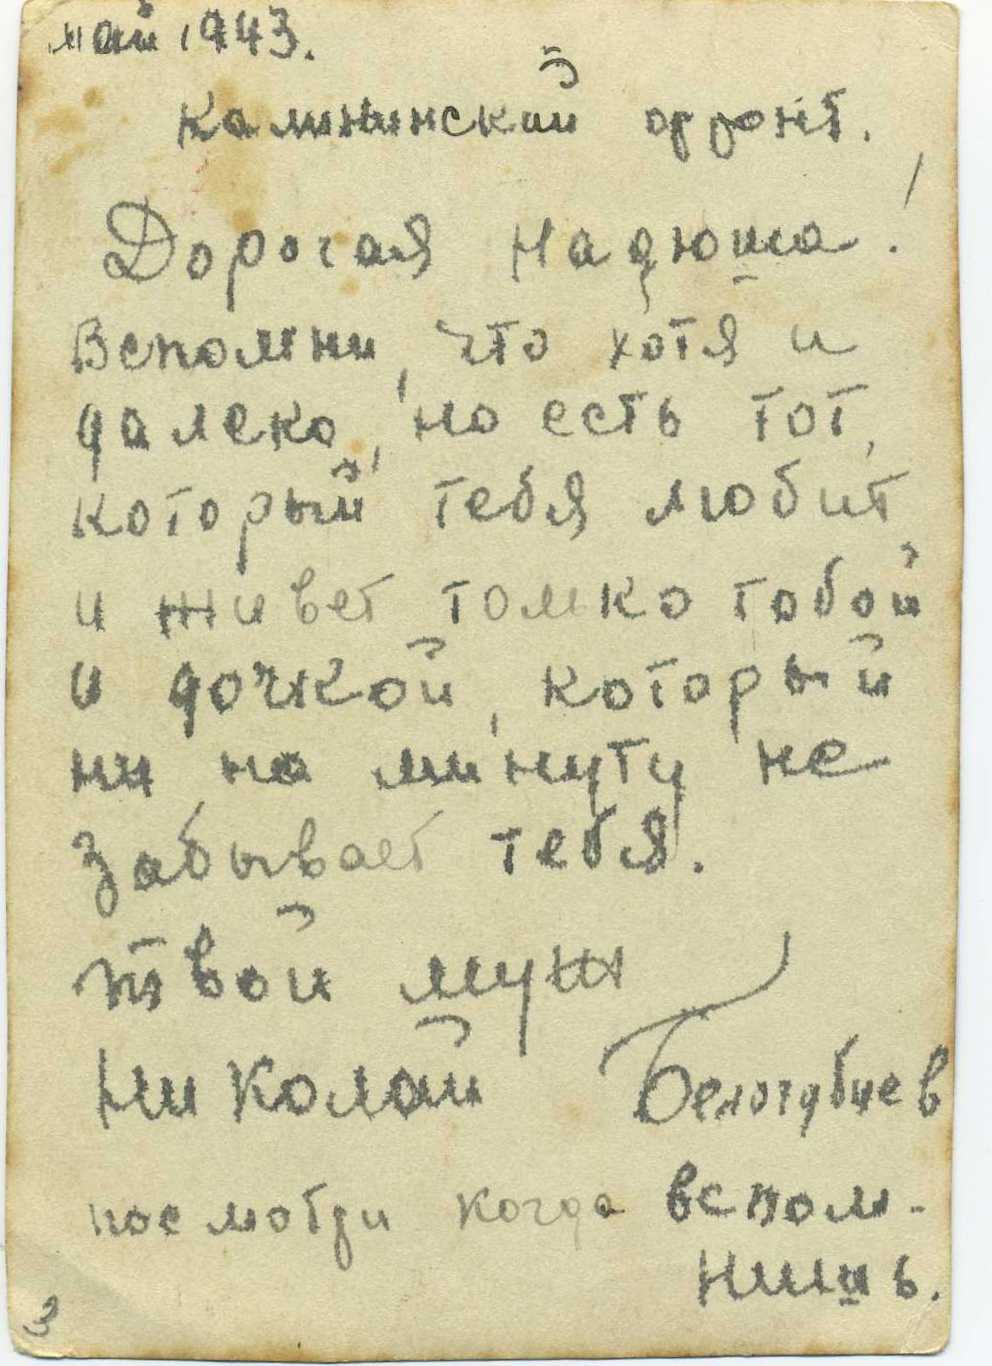 май 1943.
Калининский фронт.
Дорогая Надюша!
Вспомни, что хотя и
далеко, но есть тот,
который тебя любит
и живет томко тобой
и дочкой, который
ни на минуту не
забывает тебя.
Твой муж
Николай Белогубцев
посмотри когда вспом-
нишь.
3